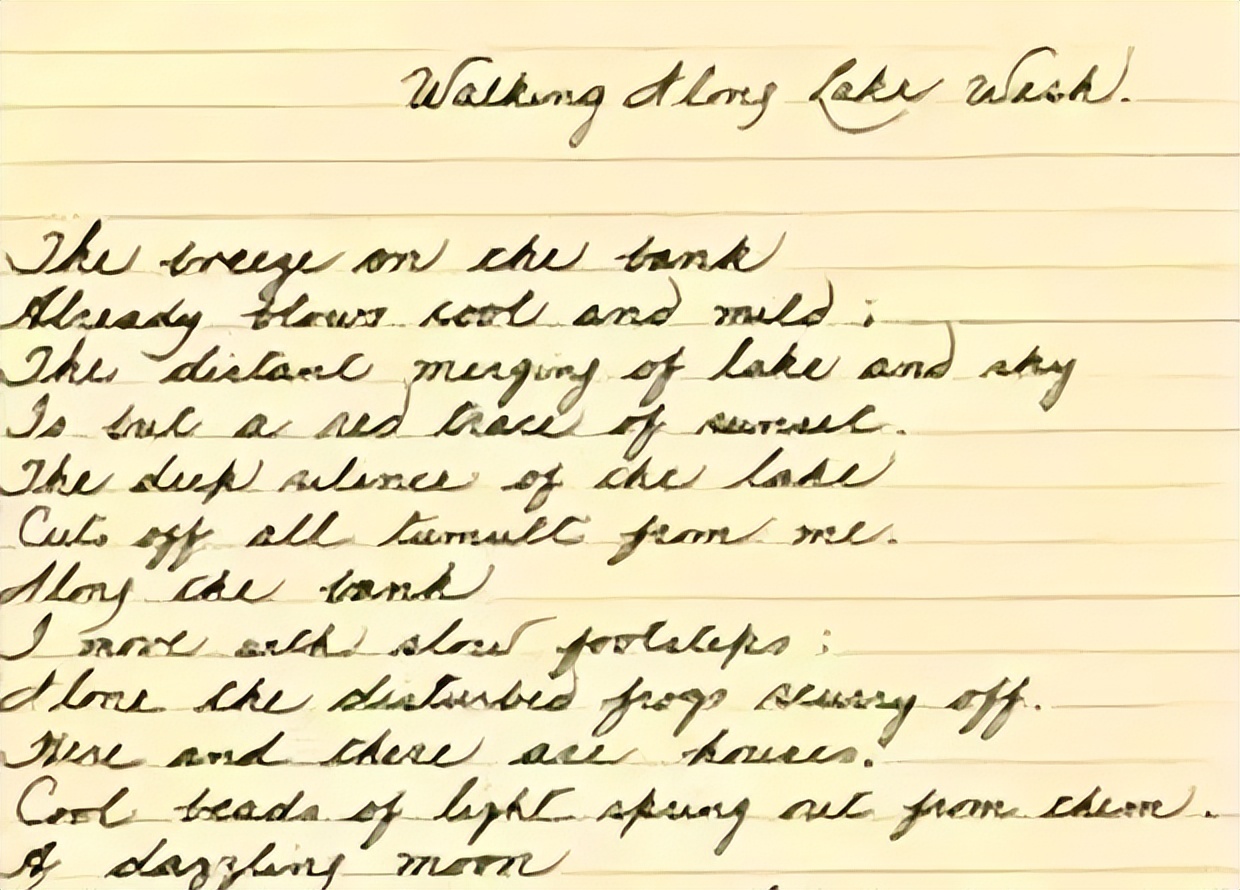 Walking Along Lake Wash.
The breeze on the bank
Already blows cool and mild;
The distant merging of lake and sky
Is but a red trace of sunset.
The deep silence of the lake
Cuts off all tumult from me.
Along the bank
I move with slow footsteps:
Alone the disturbed frogs scurry off.
Here and there are houses.
Cool beads of light spring out from them.
A dazzling moon